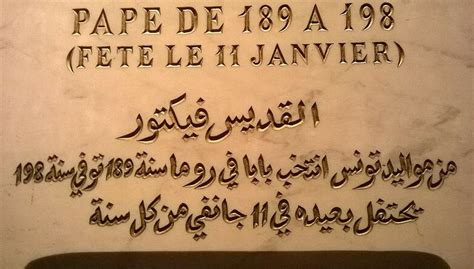 PAPE DE 189 A 198
(FETE LE 11 JANVIER)
القديس فيكتور
من مواليد تونس انتخب بابا في روما سنة 189 توفي سنة 198
يحتفل بعيده في 11 جانفي من كل سنة